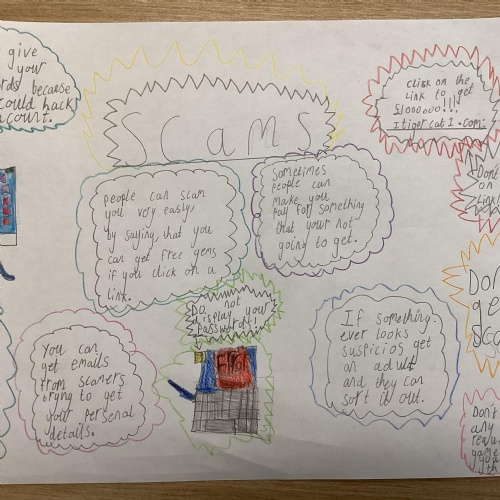 give
your
because
could hack
Scams
Click on the
link to get
$1000000!!!
Itiger cat1.com.
people can scam
you very easly,
by saying, that you
can get free gems
if you click on a
link.
Sometimes
people can
make you
pay for something
that your not
going to get.
Do not
display your
password!
You can
get emails
from scamers
trying to get
your personal
details.
If something
ever looks
suspicios get
an adult
and they can
sort it out.
Don't
on
Link
Don
ge
Sca
Don't
any